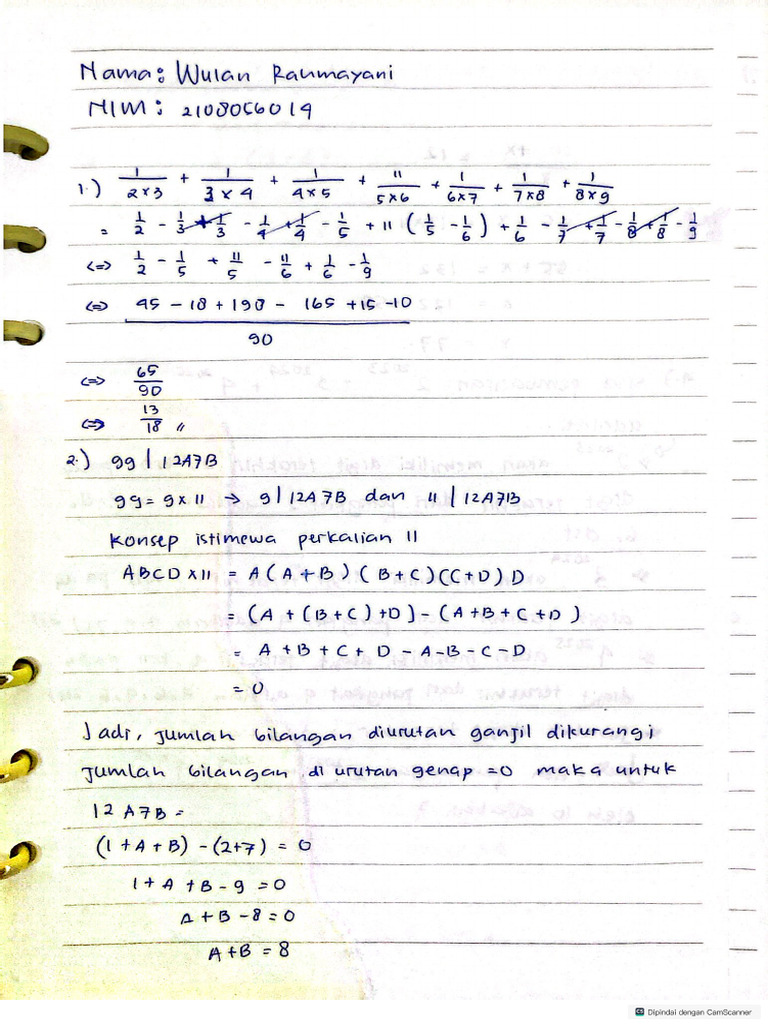 Nama: Wulan Rahmayani
NIM: 2108056019
1.) 1/2×3 + 1/3×4 + 1/4×5 + 11/5×6 + 1/6×7 + 1/7×8 + 1/8×9
= 1/2 - 1/3 + 1/3 - 1/4 + 1/4 - 1/5 + 11 (1/5 - 1/6) + 1/6 - 1/7 + 1/7 - 1/8 + 1/8 - 1/9
<=> 1/2 - 1/5 + 11/5 - 11/6 + 1/6 - 1/9
<=> 45 - 18 + 198 - 165 + 15 - 10
90
<=> 65/90
<=> 13/18 //
2.) 99 | 12A7B
99 = 9 x 11 → 9 | 12A7B dan 11 | 12A7B
Konsep istimewa perkalian 11
ABCD x 11 = A (A+B) (B+C) (C+D) D
= (A + (B+C) + D) - (A+B+C+D)
= A + B + C + D - A - B - C - D
= 0
Jadi, jumlah bilangan diurutan ganjil dikurangi
jumlah bilangan di urutan genap = 0 maka untuk
12A7B =
(1 + A + B) - (2+7) = 0
1 + A + B - 9 = 0
A + B - 8 = 0
A + B = 8
Dipindai dengan CamScanner